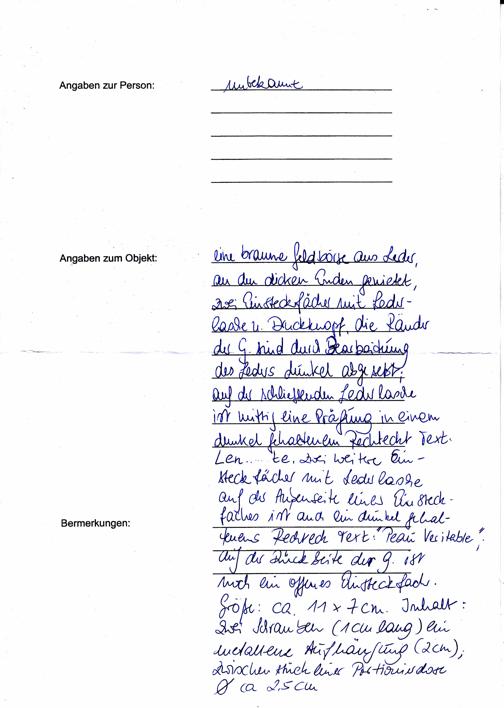 Angaben zur Person:
unbekannt
Angaben zum Objekt:
eine braune Geldbörse aus Leder,
an den dicken Enden genietet,
zwei Einsteckfächer mit Leder-
lasche u. Druckknopf, die Ränder
der G. sind durch Bearbeitung
des Leders dunkel abgesetzt,
auf der schließenden Lederlasche
ist mittig eine Prägung in einem
dunkel gehaltenem Rechteckt Text.
Len.... te. Zwei weitere Ein-
steckfächer mit Lederlasche
auf der Außenseite eines Einsteck-
Bermerkungen:
faches ist auch ein dunkel gehal-
tenens Rechteck Text: "Peau Veritable".
Auf der Rückseite der G. ist
noch ein offenes Einsteckfach.
Größe: ca. 11 x 7 cm. Inhalt:
Zwei Schrauben (1 cm lang) ein
metallene Aufhängung (2cm),
zwischen einer
Ø ca 2,5 cm